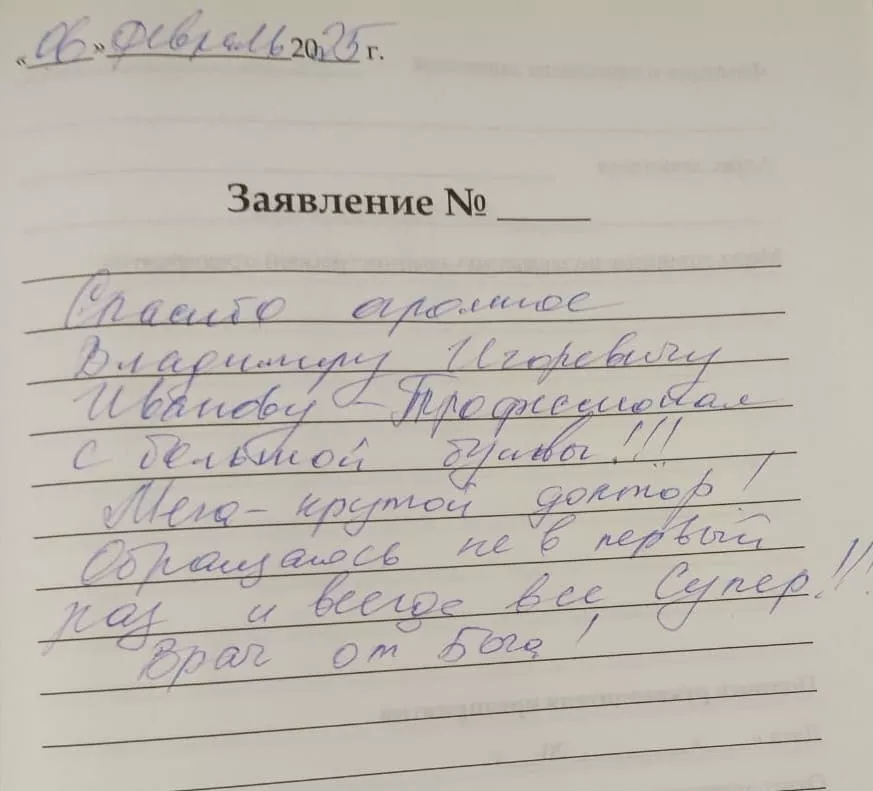 «06» Февраль 2025 г.
Заявление № ____
Спасибо огромное
Владимиру Игоревичу
Иванову – Профессионал
с большой буквы!!!
Мега-крутой доктор!
Обращаюсь не в первый
раз и всегда все Супер!!!
Врач от Бога!